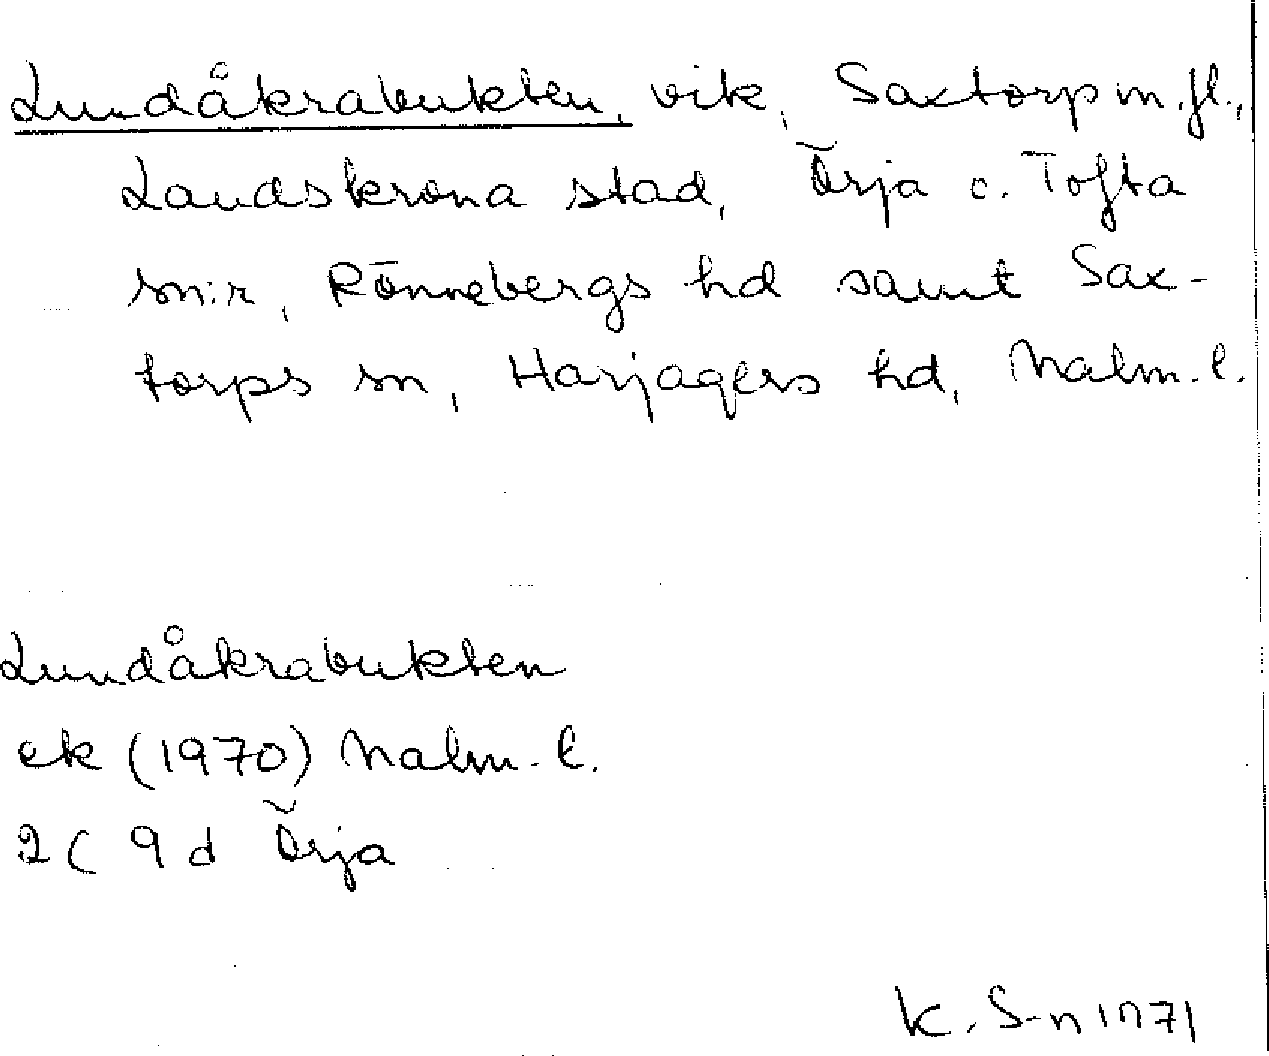 Lundåkrabukten, vik, Saxtorp m.fl.,
Landskrona stad, Örja o. Tofta
sn:r, Rönnebergs hd samt Sax-
torps sn, Harjagers hd, Malm.l.
Lundåkrabukten
ek (1970) Malm.l.
2C 9d Örja
K. S-n 1971